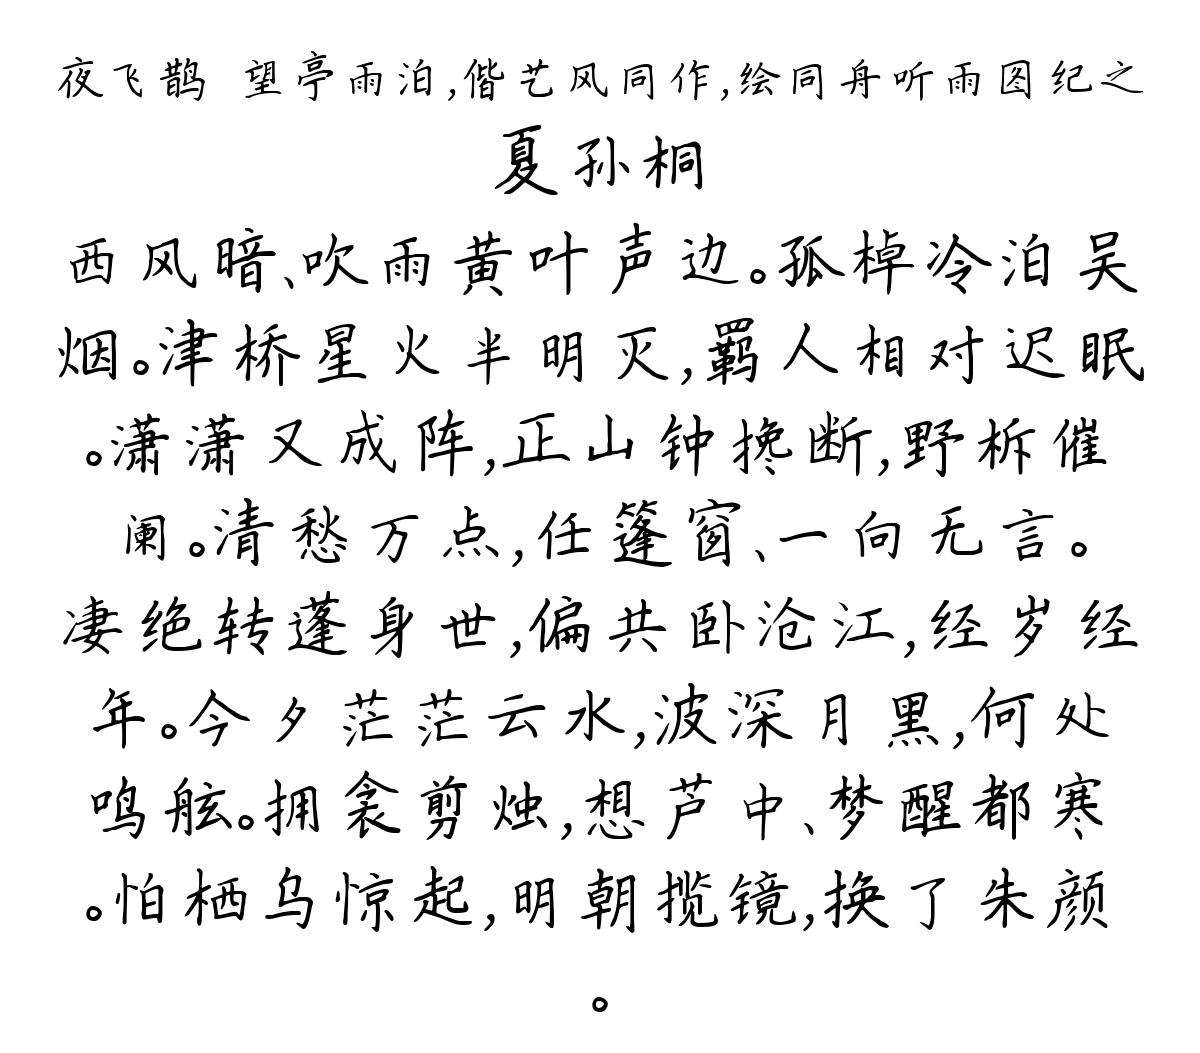 夜飞鹊 望亭雨泊,偕艺风同作,绘同舟听雨图纪之
夏孙桐
西风暗、吹雨黄叶声边。孤棹冷泊吴
烟。津桥星火半明灭,羁人相对迟眠
。潇潇又成阵,正山钟搀断,野柝催
阑。清愁万点,任篷窗、一向无言。
凄绝转蓬身世,偏共卧沧江,经岁经
年。今夕茫茫云水,波深月黑,何处
鸣舷。拥衾剪烛,想芦中、梦醒都寒
。怕栖乌惊起,明朝揽镜,换了朱颜
。